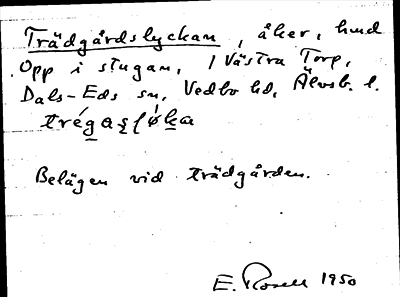 Trädgårdslyckan, åker, hmd
Opp i stugan, 1 Västra Torp,
Dals-Eds sn, Vedbo hd, Älvsb. l.
Belägen vid trädgården.
E. Rosell 1950